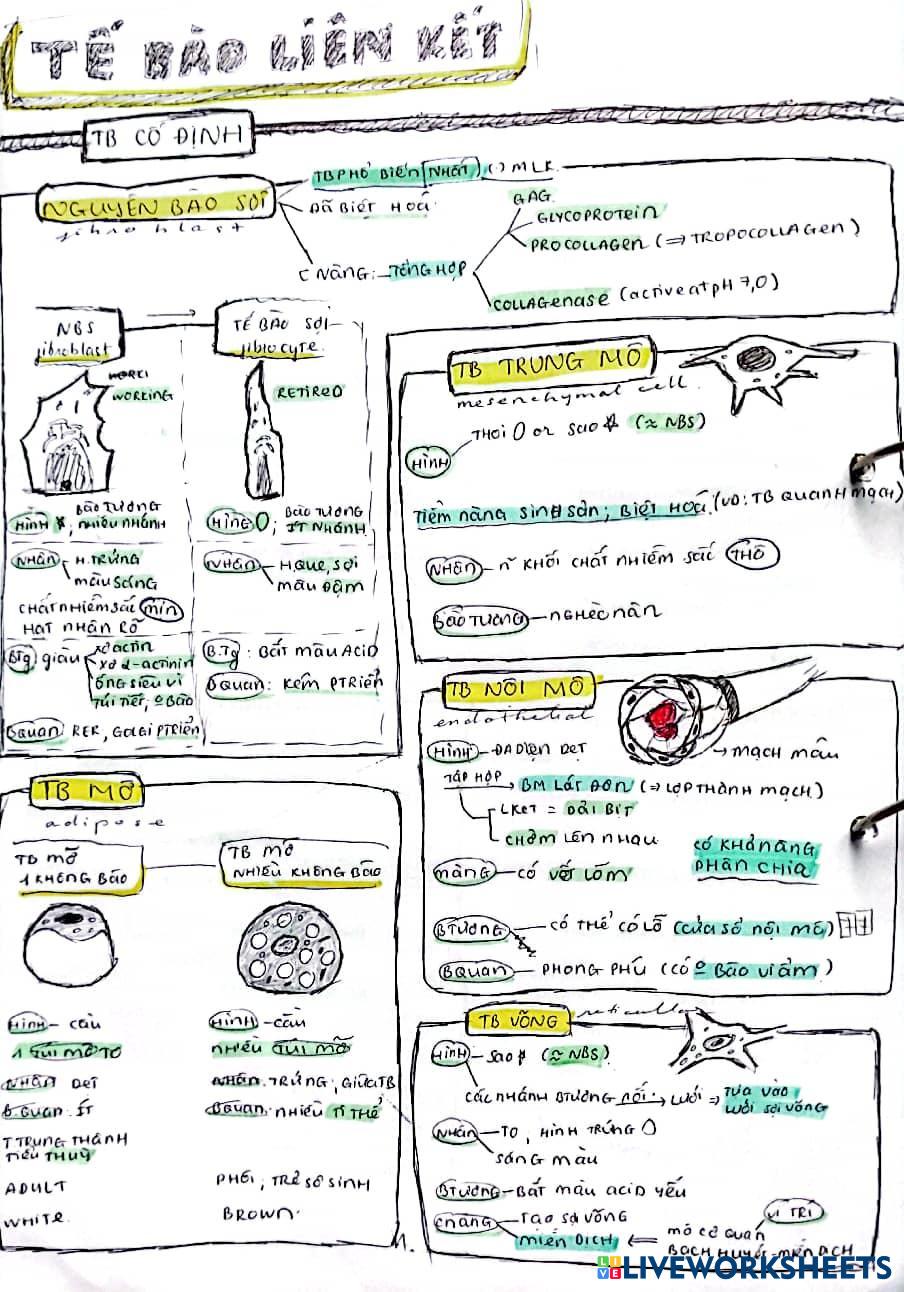 TẾ BÀO LIÊN KẾT
TB CỐ ĐỊNH
NGUYÊN BÀO SỢI
fibroblast
TB PHỔ BIẾN NHẤT (·) MLK
ĐÃ BIỆT HOÁ
C NĂNG: TỔNG HỢP
GAG
GLYCOPROTEIN
PROCOLLAGEN (⇒ TROPOCOLLAGEN)
COLLAGENASE (active at pH 7,0)
NBS
fibroblast
WORKING
TẾ BÀO SỢI
fibrocyte.
RETIRED
HÌNH ; BÀO TƯƠNG
NHIỀU NHÁNH
NHÂN - H. TRỨNG
MÀU SÁNG
CHẤT NHIỄM SẮC MỊN
HẠT NHÂN RÕ
BTg: giàu
xơ actin
xơ α-actinin
ống siêu vi
túi tiết, º Bào
BQuan: RER, GOLGI PTRIỂN
HÌNG 0; BÀO TƯƠNG
ÍT NHÁNH
NHÂN - H.QUE, SỢI
MÀU ĐẬM
B.Tg: BẮT MÀU ACID
BQuan: KÉM PTRIỂN
TB TRUNG MÔ
mesenchymal cell.
HÌNH
THOI 0 or SAO (≈ NBS)
TIỀM NĂNG SINH SẢN; BIỆT HOÁ. (VD: TB QUANH MẠCH)
NHÂN - KHỐI CHẤT NHIỄM SẮC THÔ
BÀO TƯƠNG - NGHÈO NÀN
TB NỘI MÔ
endothelial
HÌNH - ĐA DIỆN DẸT
→ MẠCH MÁU
TẬP HỢP → BM LÁT ĐƠN (⇒ LỢP THÀNH MẠCH)
LKẾT = DẢI BỊT
CHỜM LÊN NHAU
CÓ KHẢ NĂNG
PHÂN CHIA
MÀNG - CÓ VẾT LÕM
BTƯƠNG - CÓ THỂ CÓ LỖ (CỬA SỔ NỘI MÔ)
BQUAN - PHONG PHÚ (CÓ º BÀO VI ẨM)
TB MỠ
adipose
TB MỠ
1 KHÔNG BÀO
TB MỠ
NHIỀU KHÔNG BÀO
HÌNH - CẦU
1 TÚI MỠ TO
NHÂN DẸT
B.QUAN: ÍT
T TRUNG THÀNH
TIỂU THUỲ
ADULT
WHITE.
HÌNH - CẦU
NHIỀU TÚI MỠ
NHÂN. TRỨNG; GIỮA TB
BQUAN: NHIỀU TI THỂ
PHÔI; TRẺ SƠ SINH
BROWN
TB VÕNG
HÌNH - SAO (≈ NBS)
CÁC NHÁNH BTƯƠNG NỐI → LƯỚI ⇒ TỰA VÀO
LƯỚI SỢI VÕNG
NHÂN - TO, HÌNH TRỨNG 0
SÁNG MÀU
BTƯƠNG - BẮT MÀU ACID YẾU
CNĂNG - TẠO SỢI VÕNG
MIỄN DỊCH
VỊ TRÍ
⇐ MÔ CƠ QUAN
BẠCH HUYẾT-MIỄN DỊCH
LIVEWORKSHEETS